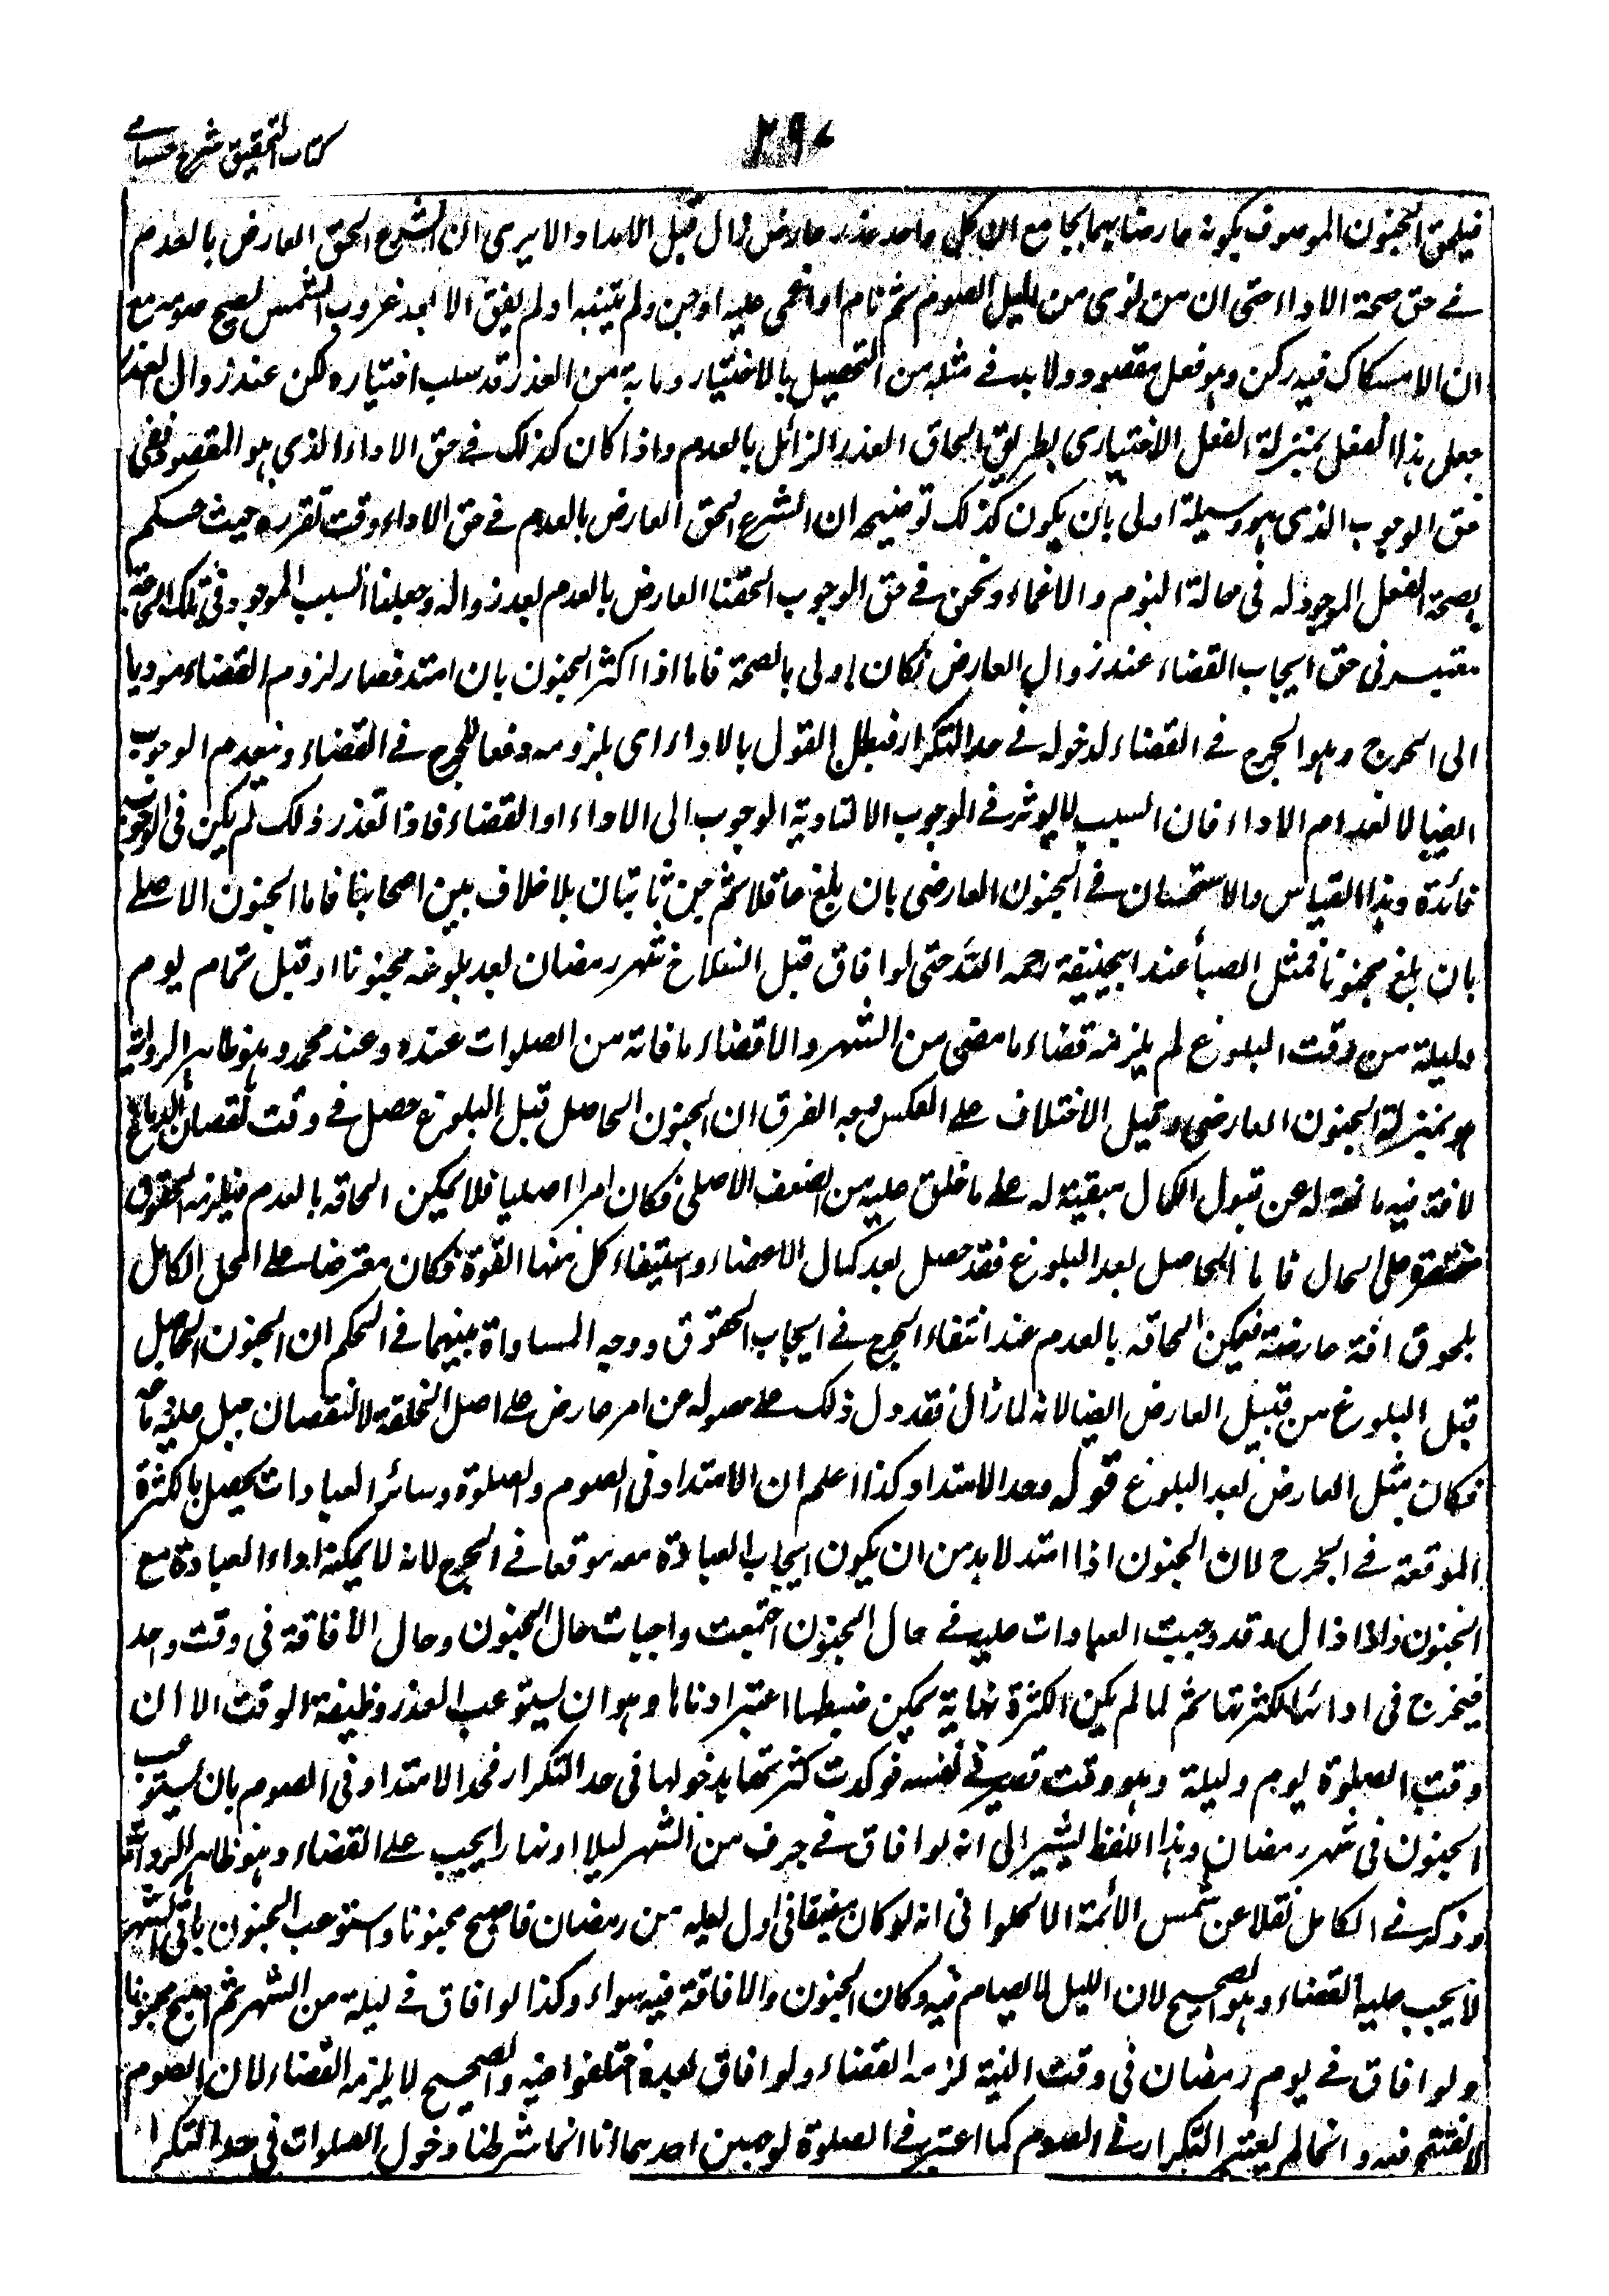 كتاب التحقيق شرح حسامى
٢٩٠
فيلحق الجنون الموصوف بكونه عارضا بهما بجامع ان كل واحد عذر عارض زال قبل الامتداد الا يرى ان الشرع الحق العارض بالعدم
فى حق صحة الاداء حتى ان من نوى من الليل الصوم ثم نام او اغمى عليه او جن ولم ينتبه او لم يفق الا بعد غروب الشمس يصح صومه مع
ان الامساك فيه ركن وهو فعل مقصود ولا بد فى مثله من التحصيل بالاختيار وما به من العذر قد سلب اختياره لكن عند زوال العذر
جعل هذا الفعل بمنزلة الفعل الاختيارى بطريق الحاق العذر الزائل بالعدم واذا كان كذلك فى حق الاداء الذى هو المقصود ففى
حق الوجوب الذى هو وسيلة اولى بان يكون كذلك توضيحه ان الشرع الحق العارض بالعدم فى حق الاداء وقت تقرره حيث حكم
بصحة الفعل الموجود له فى حالة النوم والاغماء ونحن فى حق الوجوب الحقنا العارض بالعدم بعد زواله وجعلنا السبب الموجود فى تلك الحالة
معتبرا فى حق ايجاب القضاء عند زوال العارض فكان اولى بالصحة فاما اذا اكثر الجنون بان امتد فصار لزوم القضاء موديا
الى الحرج وهو الحرج فى القضاء لدخوله فى حد التكرار فبطل القول بالاداء اى بلزومه دفعا للحرج فى القضاء وينعدم الوجوب
ايضا لانعدام الاداء فان السبب لا يوثر فى الوجوب الا لتادية الوجوب الى الاداء او القضاء فاذا تعذر ذلك لم يكن فى الوجوب
فائدة وهذا القياس والاستحسان فى الجنون العارضى بان بلغ عاقلا ثم جن ثابتان بلا خلاف بين اصحابنا فاما الجنون الاصلى
بان بلغ مجنونا فمثل الصبا عند ابيحنيفة رحمه الله حتى لو افاق قبل انسلاخ شهر رمضان بعد بلوغه مجنونا او قبل تمام يوم
وليلة من وقت البلوغ لم يلزمه قضاء ما مضى من الشهر والا قضاء ما فاته من الصلوات عنده وعند محمد وهو ظاهر الرواية
هو بمنزلة الجنون العارضى وقيل الاختلاف على العكس وجه الفرق ان الجنون الحاصل قبل البلوغ حصل فى وقت نقصان الدماغ
لافة فيه مانعة له عن قبول الكمال مبقية له على ما خلق عليه من الضعف الاصلى فكان امرا اصليا فلا يمكن الحاقه بالعدم فيلزمه الحقوق
مقتصرة على الحال فاما الحاصل بعد البلوغ فقد حصل بعد كمال الاعضاء واستيفاء كل منها القوة فكان معترضا على المحل الكامل
بلحوق افة عارضة فيمكن الحاقه بالعدم عند انتفاء الحرج فى ايجاب الحقوق ووجه المساواة بينهما فى الحكم ان الجنون الحاصل
قبل البلوغ من قبيل العارض ايضا لانه لما زال فقد دل ذلك على حصوله عن امر عارض على اصل الخلقة لا لنقصان جبل عليه دماغه
فكان مثل العارض بعد البلوغ قوله وحد الامتداد كذا اعلم ان الامتداد فى الصوم والصلوة وسائر العبادات يحصل بالكثرة
الموقعة فى الحرج لان الجنون اذا امتد لا بد من ان يكون ايجاب العبادة معه موقعا فى الحرج لانه لا يمكنه اداء العبادة مع
الجنون فاذا زال وقد وجبت العبادات عليه فى حال الجنون اجتمعت واجبات حال الجنون وحال الافاقة فى وقت واحد
فيحرج فى ادائها لكثرتها ثم لما لم يكن الكثرة نهاية يمكن ضبطها اعتبر ادناها وهو ان يستوعب العذر وظيفة الوقت الا ان
وقت الصلوة يوم وليلة وهو وقت قصير فى نفسه فوكدت كثرتها بدخولها فى حد التكرار فحد الامتداد فى الصوم بان يستوعب
الجنون فى شهر رمضان وهذا اللفظ يشير الى انه لو افاق فى جزء من الشهر ليلا او نهارا يجب عليه القضاء وهو ظاهر الرواية
وذكر فى الكامل نقلا عن شمس الائمة الحلوانى انه لو كان مفيقا فى اول ليله من رمضان فاصبح مجنونا واستوعب الجنون باقى الشهر
لا يجب عليه القضاء وهو الصحيح لان الليل لا يصام فيه وكان الجنون والافاقة فيه سواء وكذا لو افاق فى ليلة من الشهر ثم اصبح مجنونا
ولو افاق فى يوم رمضان فى وقت النية لزمه القضاء ولو افاق بعده اختلفوا فيه والصحيح لا يلزمه القضاء لان الصوم
لا يفتتح فيه وانما لم يعتبر التكرار فى الصوم كما اعتبر فى الصلوة لوجهين احدهما انا انما شرطنا دخول الصلوات فى حد التكرار